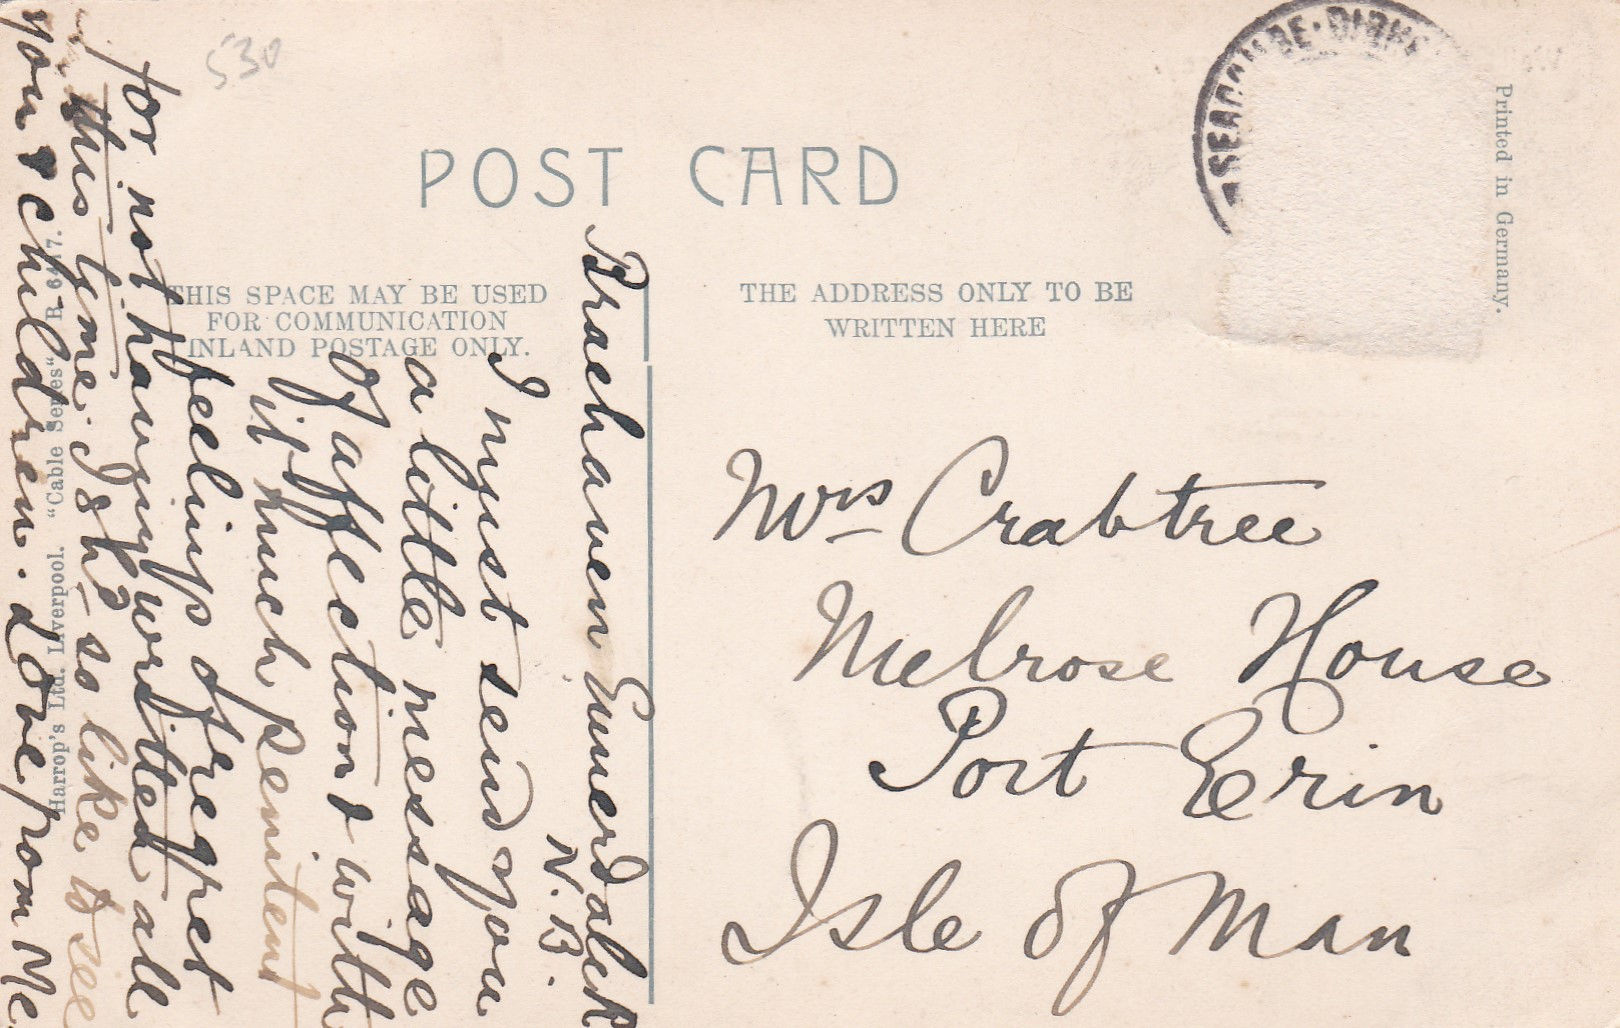 530
POST CARD
SEACOMBE · BIRK
Printed in Germany.
THIS SPACE MAY BE USED
FOR COMMUNICATION
INLAND POSTAGE ONLY.
THE ADDRESS ONLY TO BE
WRITTEN HERE
Harrop's Ltd. Liverpool. "Cable Series" R 6477.
Mrs Crabtree
Melrose House
Port Erin
Isle of Man
Braehaven
N.B.
I must send you
a little message
of affection & with
it much penitent
feeling of regret
for not having writted all
this tyme. I sh'd so like to see
you & children. Love from Me